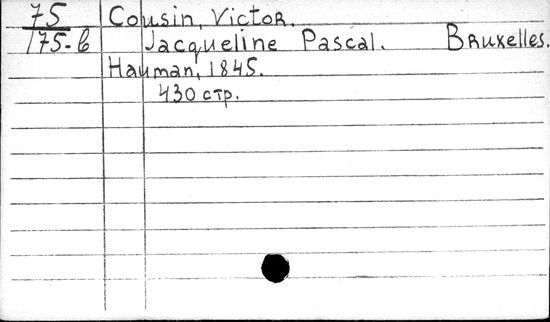 75 Cousin, Victor.
175-b Jacqueline Pascal. Bruxelles.
Hauman, 1845.
430 стр.